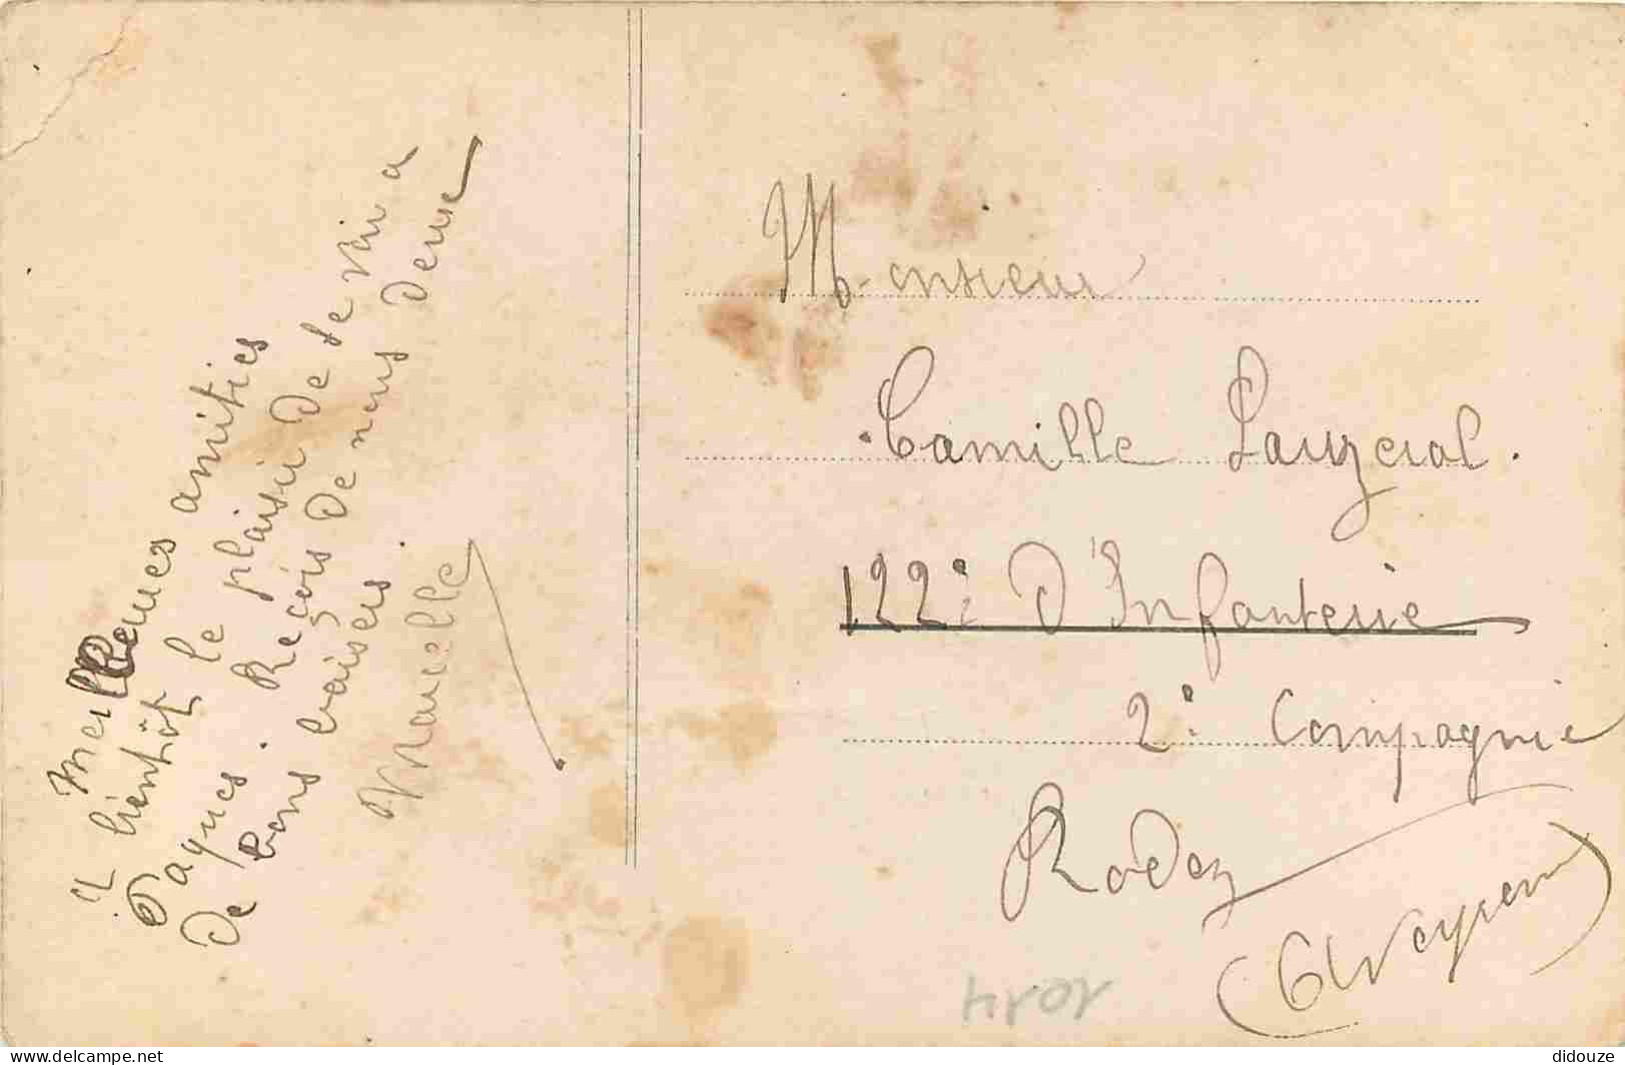 Meilleures amitiés
A bientôt le plaisir de te voir à
Paques. Reçois de nous deux
de bons baisers.
Marcelle
Monsieur
Camille Lauzeral.
122e d'Infanterie
2e Compagnie
Rodez
(Aveyron)
delcampe.net
didouze